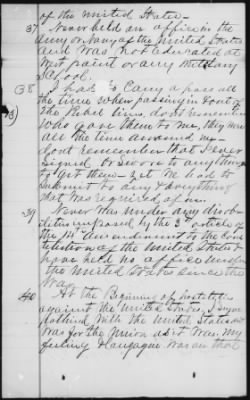 of the United States—
37 Never held an office in the
Army or Navy of the United States
and was not educated at
West point or any Military
School.
38 I had to Carry a pass all
the time when passing in & out of
the Rebel lines, dont remember
who gave them to me, they were
all the time
dont remember that I ever
Signed or Swore to any thing
to get them – yet We had to
Submit to any & Everything
that was required of us.
39 Never was under any disab-
ilities imposed by the 3d article of
the 14th amendment to the Con-
stitution of the United States &
have held no office under
the United States Since the
War
40 At the Beginning of hostilities
against the United States, I Sym-
pathized with the United States &
was for the Union as it was. My
feeling & language was on that